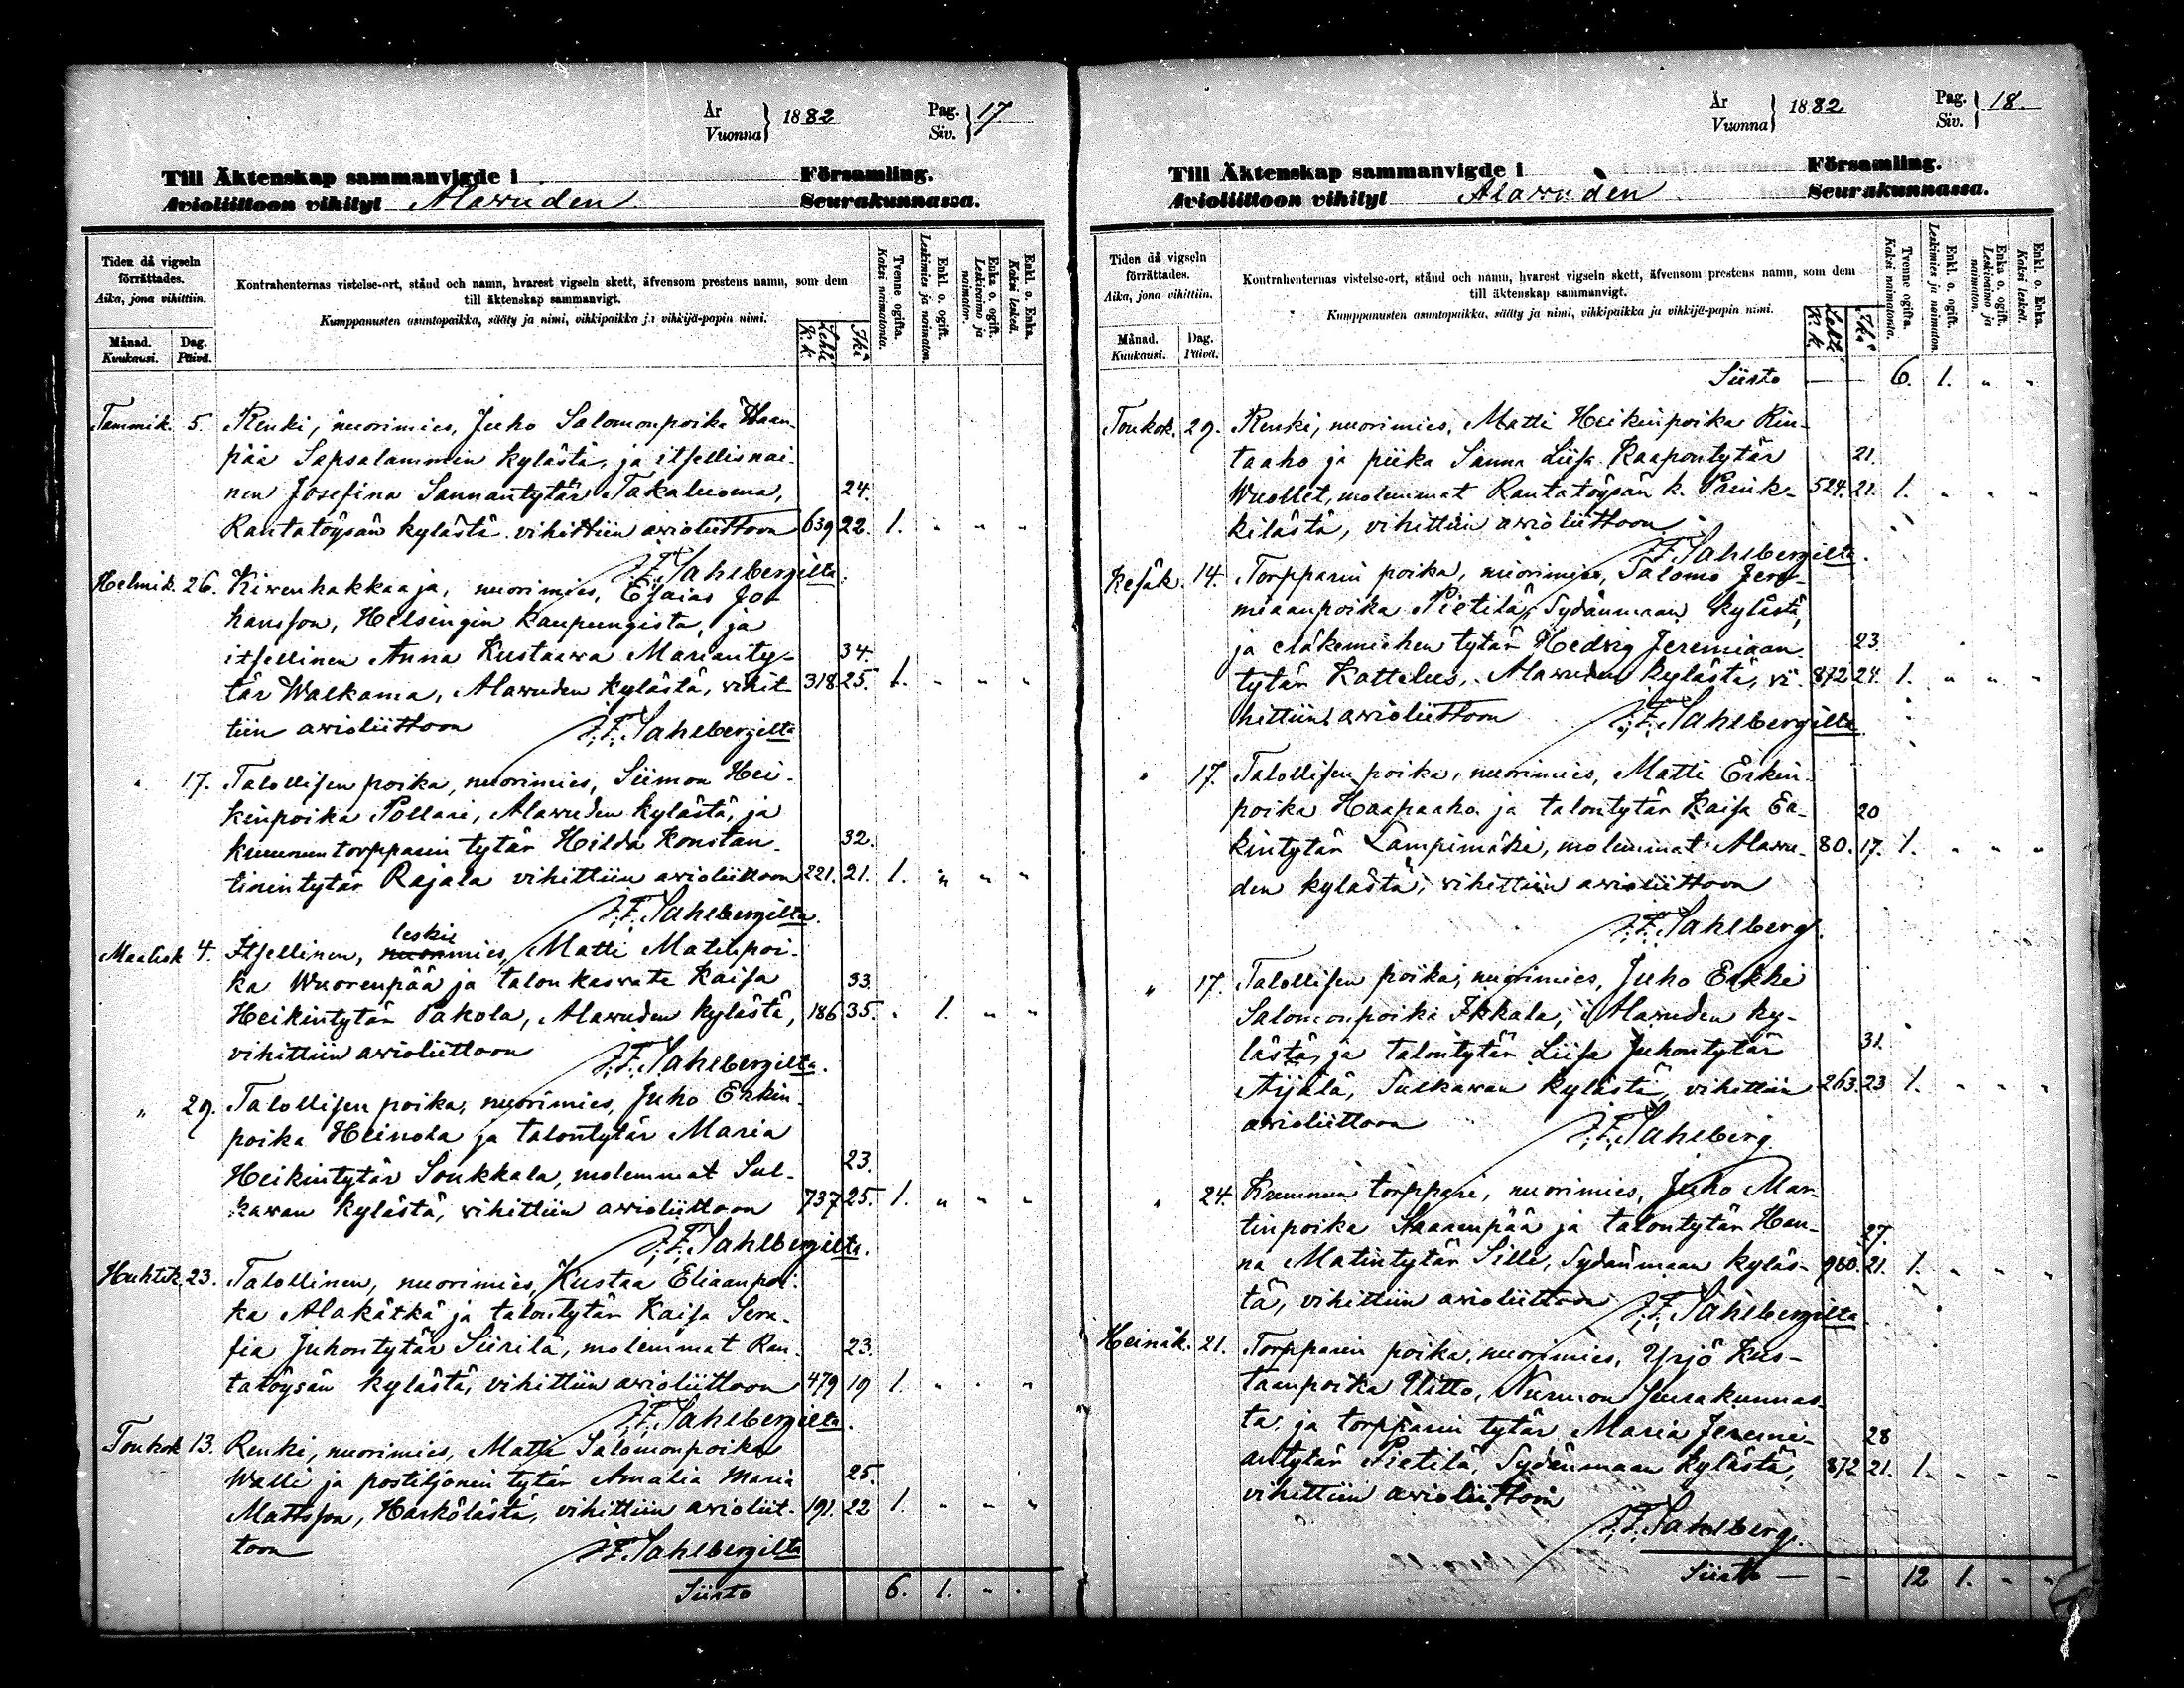 År
Vuonna } 1882
Pag.
Siv. } 17
Till Äktenskap sammanvigde i Församling.
Avioliittoon vihityt Alawuden Seurakunnassa.
Tiden då vigseln förrättades.
Aika, jona vihittiin.
Månad. Kuukausi.
Dag. Päivä.
Kontrahenternas vistelse-ort, stånd och namn, hvarest vigseln skett, äfvensom prestens namn, som dem
till äktenskap sammanvigt.
Kumppanusten asuntopaikka, sääty ja nimi, vihkipaikka ja vihkijä-papin nimi.
Lehti K.k.
Ikä
Tvenne ogifta. Kaksi naimatonta.
Enkl. o. ogift. Leskimies ja naimaton.
Enka o. ogift. Leskivaimo ja naimaton.
Enkl. o. Enka. Kaksi leskeä.
Tammik. 5. Renki, nuorimies, Juho Salomonpoika Haan-
pää Sapsalammin kylästä, ja itsellisnai-
nen Josefina Sannantytär Takaluoma, 24.
Rantatöysän kylästä vihittiin avioliittoon 639 22. 1. " " "
F.F. Sahlbergilta.
Helmik. 26. Kiwenhakkaaja, nuorimies, Esaias Jo-
hansson, Helsingin kaupungista, ja
itsellinen Anna Kustaawa Marianty- 34.
tär Walkama, Alawuden kylästä, vihit- 318 25. 1. " " "
tiin avioliittoon F.F. Sahlbergilta
" 17. Talollisen poika, nuorimies, Siimon Hei-
kinpoika Pollari, Alawuden kylästä, ja
kruunun torpparin tytär Hilda Konstan- 32.
tinintytär Rajala vihittiin avioliittoon 221. 21. 1. " " "
F.F. Sahlbergilta.
leski
Maalisk 4. Itsellinen, nuorimies, Matti Matinpoi-
ka Wuorenpää ja talon kaswate Kaisa 33.
Heikintytär Pakola, Alawuden kylästä, 186 35. " 1. " "
vihittiin avioliittoon F.F. Sahlbergilta.
" 29. Talollisen poika, nuorimies, Juho Erkin-
poika Heinola ja talontytär Maria
Heikintytär Soukkala, molemmat Sul- 23.
kawan kylästä, vihittiin avioliittoon 737 25. 1. " " "
F.F. Sahlbergilta.
Huhtik. 23. Talollinen, nuorimies, Kustaa Eliaanpoi-
ka Alakätkä ja talontytär Kaisa Sera-
fia Juhontytär Siirilä, molemmat Ran- 23.
tatöysän kylästä, vihittiin avioliittoon 479 19 1. " " "
F.F. Sahlbergilta.
Toukok 13. Renki, nuorimies, Matti Salomonpoika
Walli ja postiljonin tytär Amalia Maria 25.
Mattsson, Härkölästä, vihittiin avioliit- 191. 22 1. " " "
toon F.F. Sahlbergilta
Siirto 6. 1. " "
År
Vuonna } 1882
Pag.
Siv. } 18.
Till Äktenskap sammanvigde i Församling.
Avioliittoon vihityt Alawuden Seurakunnassa.
Tiden då vigseln förrättades.
Aika, jona vihittiin.
Månad. Kuukausi.
Dag. Päivä.
Kontrahenternas vistelse-ort, stånd och namn, hvarest vigseln skett, äfvensom prestens namn, som dem
till äktenskap sammanvigt.
Kumppanusten asuntopaikka, sääty ja nimi, vihkipaikka ja vihkijä-papin nimi.
Lehti K.k.
Ikä
Tvenne ogifta. Kaksi naimatonta.
Enkl. o. ogift. Leskimies ja naimaton.
Enka o. ogift. Leskivaimo ja naimaton.
Enkl. o. Enka. Kaksi leskeä.
Siirto — — 6. 1. " "
Toukok. 29. Renki, nuorimies, Matti Heikinpoika Rin-
taaho ja piika Sanna Liisa Kaapontytär 21.
Wuollet, molemmat Rantatöysän k. 524. 21. 1. " " "
kilästä, vihittiin avioliittoon
F.F. Sahlbergilta.
Kesäk. 14. Torpparin poika, nuorimies, Salomo Jere-
miaanpoika Pietilä, Sydänmaan kylästä,
ja eläkemiehen tytär Hedvig Jeremiaan- 23.
tytär Kattelus, Alawuden kylästä, vi- 872 24. 1. " " "
hittiin avioliittoon F.F. Sahlbergilta
" 17. Talollisen poika, nuorimies, Matti Erkin-
poika Haapaaho ja talontytär Kaisa Er- 20
kintytär Lampimäki, molemmat Alawu- 80. 17. 1. " " "
den kylästä, vihittiin avioliittoon
F.F. Sahlberg.
" 17. Talollisen poika, nuorimies, Juho Erkki
Salomonpoika Ikkala, Alawuden ky-
lästä, ja talontytär Liisa Juhontytär 31.
Äijälä, Sulkawan kylästä, vihittiin 263. 23 1. " " "
avioliittoon F.F. Sahlberg
" 24. Kruunun torppari, nuorimies, Juho Mar-
tinpoika Saarenpää ja talontytär Han- 27.
na Matintytär Sille, Sydänmaan kyläs- 960. 21. 1. " " "
tä, vihittiin avioliittoon F.F. Sahlbergilta
Heinäk. 21. Torpparin poika, nuorimies, Yrjö Kus-
taanpoika Uitto, Nurmon seurakunnas-
ta, ja torpparin tytär Maria Jeremi- 28
antytär Pietilä, Sydänmaan kylästä, 872 21. 1. " " "
vihittiin avioliittoon
F.F. Sahlberg.
Siirto — — 12 1. " "